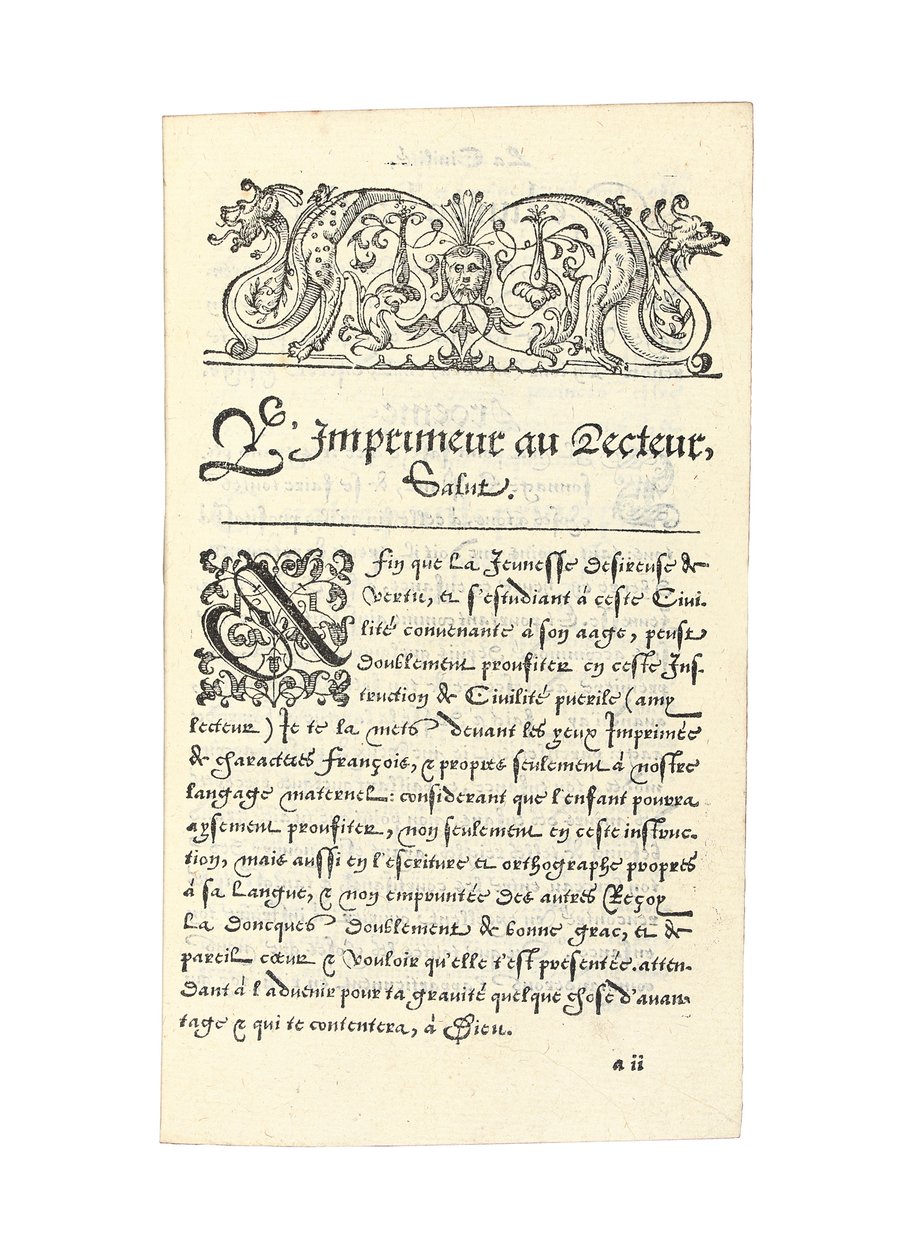 L'Imprimeur au Lecteur,
Salut.
Afin que la Jeunesse desireuse de
vertu, et s'estudiant à ceste Civi-
lité convenante à son aage, peust
doublement proufiter en ceste Ins-
truction de Civilité puerile (amy
lecteur) Je te la mets devant les yeux Imprimée
de characteres François, & propres seulement à nostre
langage maternel: considerant que l'enfant pourra
aysement proufiter, non seulement en ceste instruc-
tion, mais aussi en l'escriture et orthographe propres
à sa Langue, & non empruntée des autres Reçoy
la doncques doublement de bonne grac, et de
pareil cœur & vouloir qu'elle t'est presentée. atten-
dant à l'advenir pour ta gravité quelque chose d'avan-
tage & qui te contentera, à Dieu.
a ii